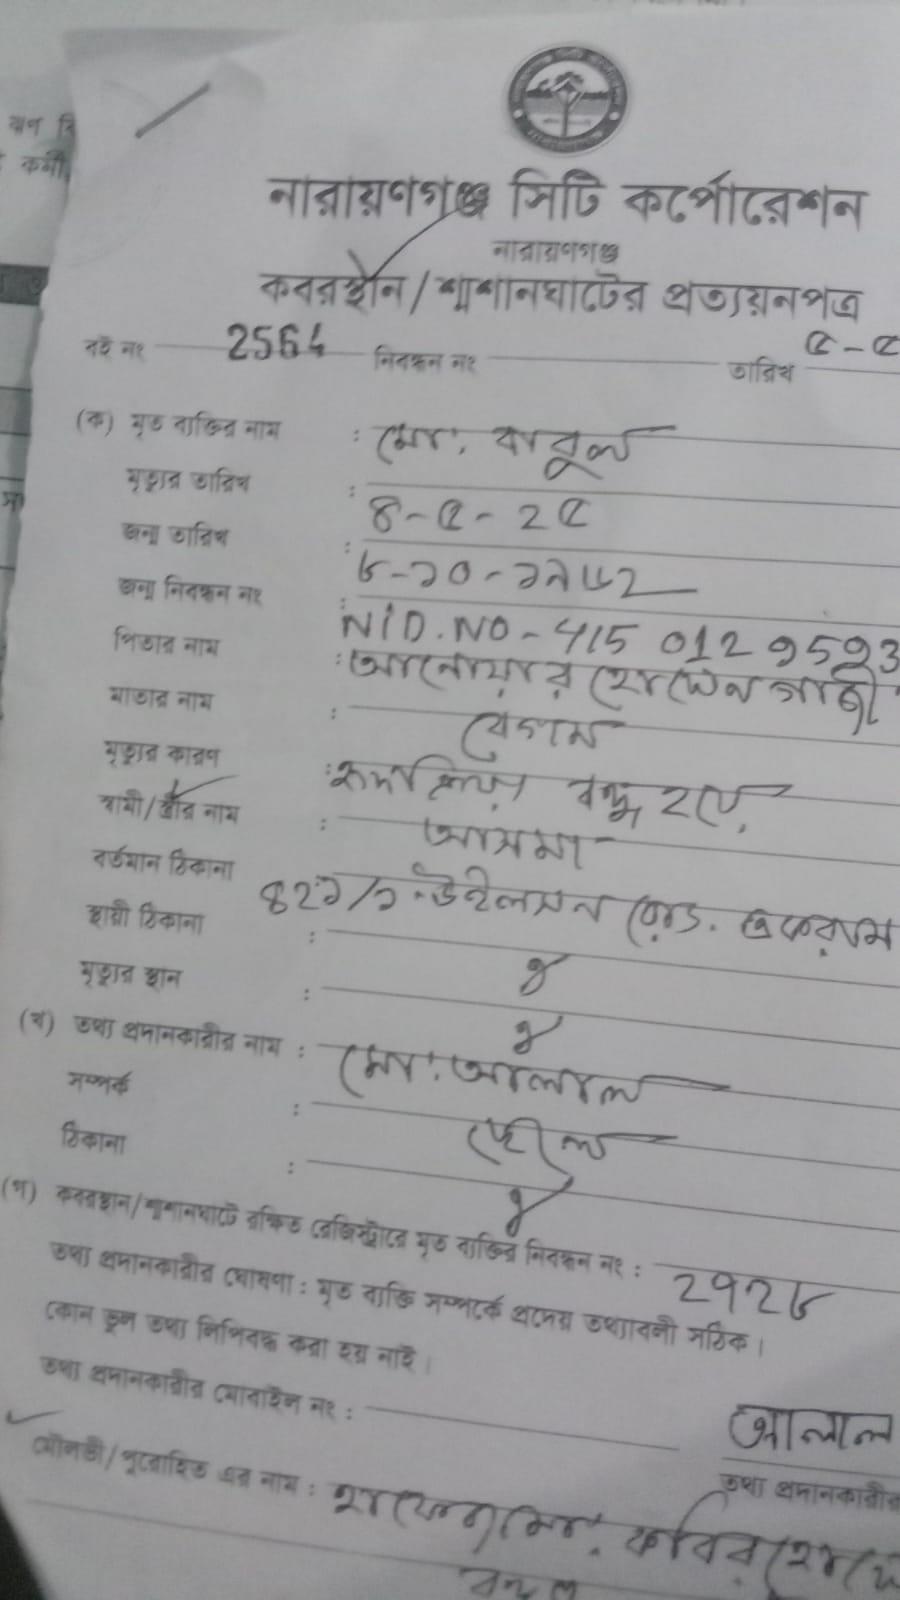 নারায়ণগঞ্জ সিটি কর্পোরেশন
নারায়ণগঞ্জ
কবরস্থান/শ্মশানঘাটের প্রত্যয়নপত্র
বই নং 2564 নিবন্ধন নং তারিখ ৫-৫
(ক) মৃত ব্যক্তির নাম : মোঃ বাবুল
মৃত্যুর তারিখ : ৪-৫-২৫
জন্ম তারিখ : ৮-১০-১৯৬২
জন্ম নিবন্ধন নং : NID.NO-415 012 9593
পিতার নাম : আনোয়ার হোসেন গাজী
মাতার নাম : বেগম
মৃত্যুর কারণ : হৃদক্রিয়া বন্ধ হয়ে
স্বামী/স্ত্রীর নাম : আসমা
বর্তমান ঠিকানা ৪২১/১ উইলসন রোড.
স্থায়ী ঠিকানা : ঐ
মৃত্যুর স্থান : ঐ
(খ) তথ্য প্রদানকারীর নাম : মোঃ আলাল
সম্পর্ক : ছেলে
ঠিকানা : ঐ
(গ) কবরস্থান/শ্মশানঘাটে রক্ষিত রেজিস্ট্রারে মৃত ব্যক্তির নিবন্ধন নং : ২৭২৮
তথ্য প্রদানকারীর ঘোষণা : মৃত ব্যক্তি সম্পর্কে প্রদেয় তথ্যাবলী সঠিক।
কোন ভুল তথ্য লিপিবদ্ধ করা হয় নাই।
তথ্য প্রদানকারীর মোবাইল নং :
আলাল
তথ্য প্রদানকারীর
মৌলভী/পুরোহিত এর নাম : হাফেজ মোঃ কবির